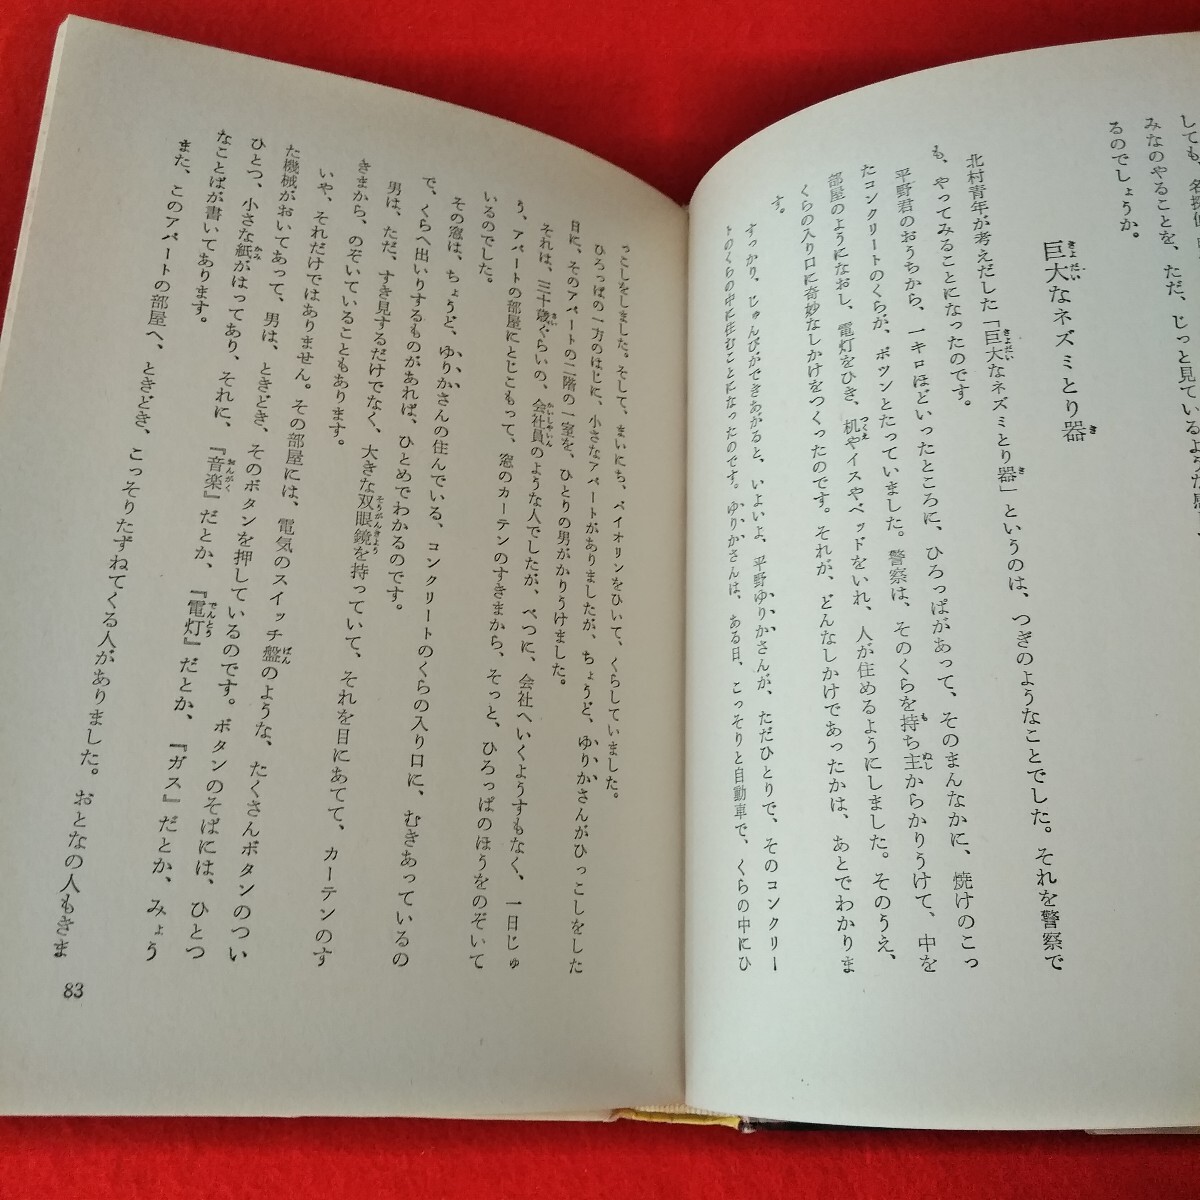 しても、名探偵
みなのやることを、ただ、じっと見ているような
るのでしょうか。
巨大なネズミとり器
北村青年が考えだした「巨大なネズミとり器」というのは、つぎのようなことでした。それを警察で
も、やってみることになったのです。
平野君のおうちから、一キロほどいったところに、ひろっぱがあって、そのまんなかに、焼けのこっ
たコンクリートのくらが、ポツンとたっていました。警察は、そのくらを持ち主からかりうけて、中を
部屋のようになおし、電灯をひき、机やイスやベッドをいれ、人が住めるようにしました。そのうえ、
くらの入り口に奇妙なしかけをつくったのです。それが、どんなしかけであったかは、あとでわかりま
す。
すっかり、じゅんびができあがると、いよいよ、平野ゆりかさんが、ただひとりで、そのコンクリー
トのくらの中に住むことになったのです。ゆりかさんは、ある日、こっそりと自動車で、くらの中にひ
っこしをしました。そして、まいにち、バイオリンをひいて、くらしていました。
ひろっぱの一方のはじに、小さなアパートがありましたが、ちょうど、ゆりかさんがひっこしをした
日に、そのアパートの二階の一室を、ひとりの男がかりうけました。
それは、三十歳ぐらいの、会社員のような人でしたが、べつに、会社へいくようすもなく、一日じゅ
う、アパートの部屋にとじこもって、窓のカーテンのすきまから、そっと、ひろっぱのほうをのぞいて
いるのでした。
その窓は、ちょうど、ゆりかさんの住んでいる、コンクリートのくらの入り口に、むきあっているの
で、くらへ出いりするものがあれば、ひとめでわかるのです。
男は、ただ、すき見するだけでなく、大きな双眼鏡を持っていて、それを目にあてて、カーテンのす
きまから、のぞいていることもあります。
いや、それだけではありません。その部屋には、電気のスイッチ盤のような、たくさんボタンのつい
た機械がおいてあって、男は、ときどき、そのボタンを押しているのです。ボタンのそばには、ひとつ
ひとつ、小さな紙がはってあり、それに、『音楽』だとか、『電灯』だとか、『ガス』だとか、みょう
なことばが書いてあります。
また、このアパートの部屋へ、ときどき、こっそりたずねてくる人がありました。おとなの人もきま
83